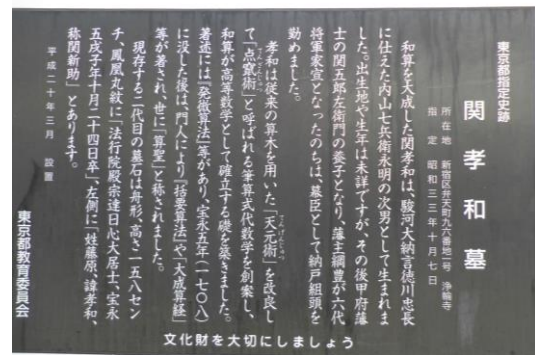 東京都指定史跡
関孝和墓
所在地　新宿区弁天町九六番地一号　浄輪寺
指定　昭和三三年十月七日
和算を大成した関孝和は、駿河大納言徳川忠長
に仕えた内山七兵衛永明の次男として生まれま
した。出生地や生年は未詳ですが、その後甲府藩
士の関五郎左衛門の養子となり、藩主綱豊が六代
将軍家宣となったのちは、幕臣として納戸組頭を
勤めました。
孝和は従来の算木を用いた「天元術」を改良し
て「点竄術」と呼ばれる筆算式代数学を創案し、
和算が高等数学として確立する礎を築きました。
著述には「発微算法」等があり、宝永五年(一七〇八)
に没した後は、門人により「括要算法」や「大成算経」
等が著され、世に「算聖」と称されました。
現存する二代目の墓石は舟形、高さ一五八セン
チ、鳳凰丸紋に「法行院殿宗達日心大居士、宝永
五戊子年十月二十四日卒」、左側に「姓藤原、諱孝和、
称関新助」とあります。
平成二十年三月　設置
東京都教育委員会
文化財を大切にしましょう